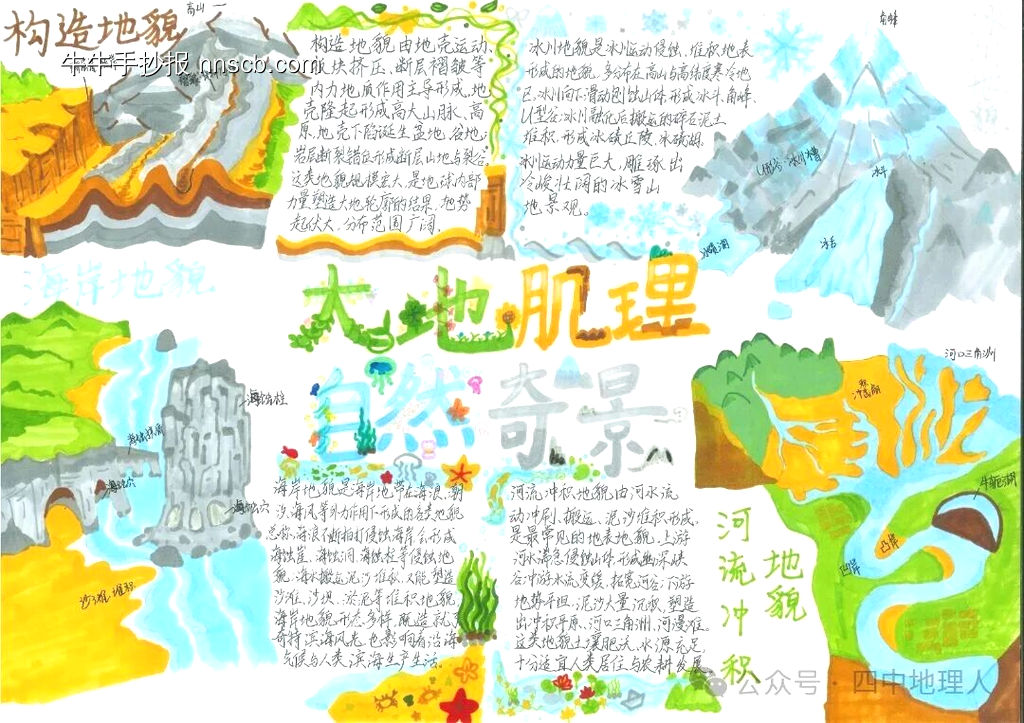 构造地貌
高山
牛牛手抄报 nnscb.com
构造地貌由地壳运动、
板块挤压、断层褶皱等
内力地质作用主导形成,地
壳隆起形成高大山脉、高
原,地壳下陷诞生盆地、谷地;
岩层断裂错位形成断层山地与裂谷。
这类地貌规模宏大,是地球内部
力量塑造大地轮廓的结果,地势
起伏大,分布范围广阔。
冰川地貌是冰川运动侵蚀、堆积地表
形成的地貌,多分布在高山与高纬度寒冷地
区,冰川向下滑动刨蚀山体,形成冰斗、角峰、
U型谷;冰川融化后搬运的碎石泥土
堆积,形成冰碛丘陵、冰碛湖。
冰川运动力量巨大,雕琢出
冷峻壮阔的冰雪山
地景观。
角峰
U形谷·冰川槽
冰斗
冰舌
冰碛湖
大地肌理
自然奇景
海岸地貌
海蚀柱
海蚀拱桥
海蚀穴
海蚀穴
沙滩·堆积
海岸地貌是海岸地带在海浪、潮
汐、海风等外力作用下形成的各类地貌
总称,海浪不断拍打侵蚀海岸,会形成
海蚀崖、海蚀洞、海蚀柱等侵蚀地
貌,海水搬运泥沙堆积,又能塑造
沙滩、沙坝、淤泥等堆积地貌,
海岸地貌形态多样,既造就了
奇特滨海风光,也影响着沿海
气候与人类滨海生产生活。
河流冲积地貌由河水流
动冲刷、搬运、泥沙堆积形成,
是最常见的地表地貌,上游
河水湍急侵蚀山体,形成幽深峡
谷;中游水流变缓,拓宽河谷;下游
地势平坦,泥沙大量沉积,塑造
出冲积平原、河口三角洲、河漫滩。
这类地貌土壤肥沃、水源充足,
十分适宜人类居住与农耕发展
河流冲积
地貌
河口三角洲
冲积扇
牛轭湖
凸岸
凹岸
公众号·四中地理人